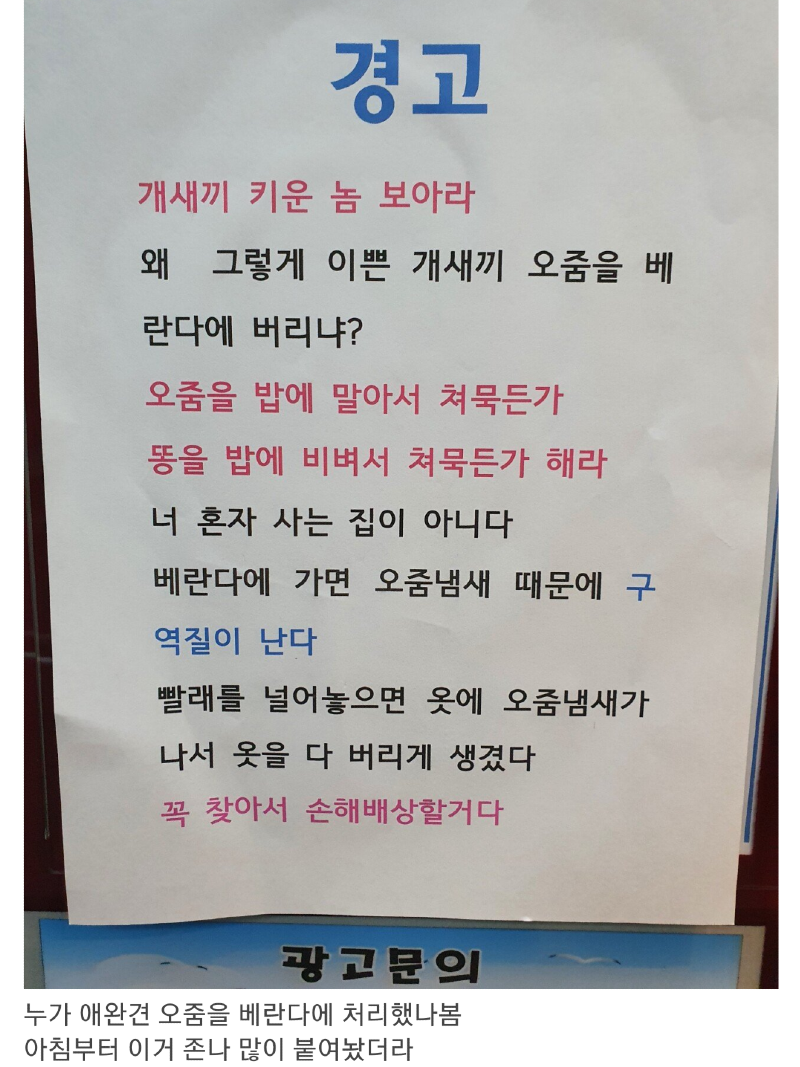 경고
개새끼 키운 놈 보아라
왜 그렇게 이쁜 개새끼 오줌을 베
란다에 버리냐?
오줌을 밥에 말아서 쳐묵든가
똥을 밥에 비벼서 쳐묵든가 해라
너 혼자 사는 집이 아니다
베란다에 가면 오줌냄새 때문에 구
역질이 난다
빨래를 널어놓으면 옷에 오줌냄새가
나서 옷을 다 버리게 생겼다
꼭 찾아서 손해배상할거다
광고문의
누가 애완견 오줌을 베란다에 처리했나봄
아침부터 이거 존나 많이 붙여놨더라